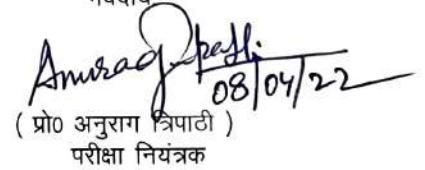 भवदीय
Anurag Tripathi
08/04/22
( प्रो० अनुराग त्रिपाठी )
परीक्षा नियंत्रक